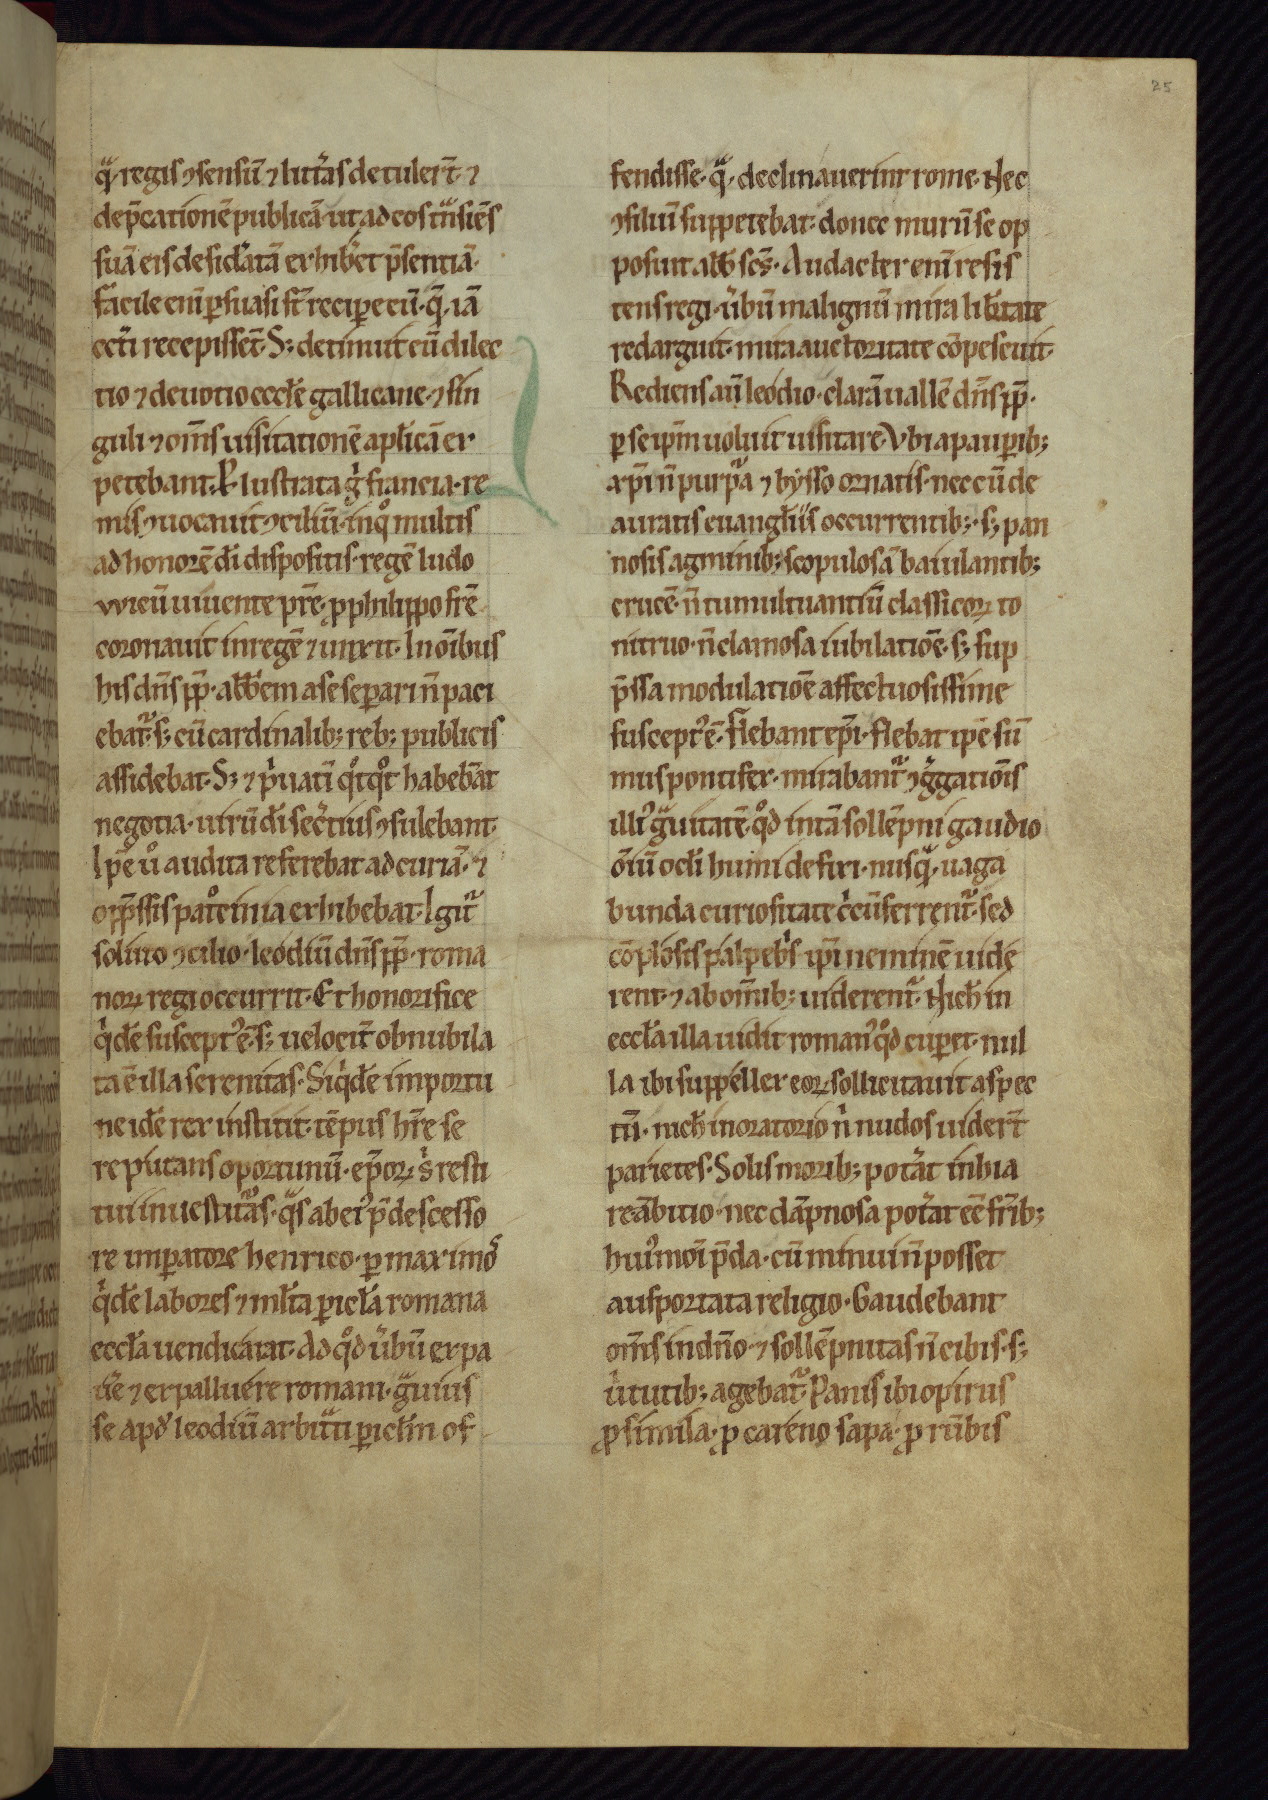 25
q̄, regis ꝯsensū ⁊ litt̄as detuler̄t ⁊
dep̄cationē publicā ut ad eos t̄nsiēs
suā eis desid̓atā exhib̓et p̄sentiā.
Facile eni̅ ꝑsuasi fr̄t recipe̅ eū. q̄, iā
cet̓i recepissēt. S; detinuit eū dilec
tio ⁊ deuotio eccl̄e gallicane. ⁊ sin
guli ⁊ om̄s uisitationē apl̄icā ex
petebant. P̲lustrata g̓ francia. re
mis ꝯuocauit ꝯciliū. inq̊ multis
ad honorē di̅ dispositis. regē ludo
wicū uiuente pr̄e. ꝓ philippo fr̄e
coronauit in regē ⁊ unxit. In om̄ibus
his dn̄s pp̄. abb̄em a se separi n̄ paci
ebat᷑. s; cū cardinalib; reb; publicis
assidebat. S; ⁊ p̓uatī q̊tq̊t habebāt
negotia. uirū di̅ sec̄tius ꝯsulebant.
Ip̄e ů audita referebat ad curiā. ⁊
opp̄ssis pat̊cinia exhibebat. Igit᷑
soluto ꝯcilio. leodiū dn̄s pp̄. roma
noꝝ regi occurrit. Et honorifice
q̓dē suscept᷒ ē. s; uelocit̄ obnubila
ta ē illa serenitas. Siq̓dē importu
ne idē rex institit. tēpus hr̄e se
reputans oportunū. ep̄oꝝ s̓ resti
tui inuestit᷑as. q̓s ab ei᷒ p̄decesso
re imꝑatore henrico. ꝑ maximos
q̓dē labores ⁊ ml̄ta ꝑicl̄a romana
eccl̄a uendicarat. Ad q̊d u̓bū expa
uēre ⁊ expalluēre romani. g̓uius
se apd̓ leodiū arbit᷑ti ꝑicl̄m of
fendisse. q̄, declinauerint rome. Nec
ꝯsiliū suppetebat. donec murū se op
posuit abb̄ sc̄s. Audacter eni̅ resis
tens regi. u̓bū malignū mira lib̓tate
redarguit. mira auctoritate cōpescuit.
Rediens aū leodio. clarā uallē dn̄s pp̄.
ꝑ se ip̄m uoluit uisitare. Vbi a pauꝑib;
xp̄i n̄ purp᷑a ⁊ bysso ornatis. nec cū de
auratis euangl̄iis occurrentib;. s; pan
nosis agminib; scopulosā baiulantib;
crucē. n̄ tumultuantiū classicoꝝ to
nitruo. n̄ clamosa iubilatiōe. s; sup
p̄ssa modulatiōe affectuosissime
suscept᷒ ē. Flebant ep̄i. flebat ip̄e sū
mus pontifex. mirabant᷑ ꝯg̓gatiōis
illi᷒ g̓uitatē. q̊d intā sollēpni gaudio
ōiū ocl̄i humi defixi. nusq̄, uaga
bunda curiositate c̓cūferrent᷑. sed
cōplosis palpeb̓s ip̄i neminē uide
rent. ⁊ ab om̄ib; uiderent᷑. Nich̄ in
eccl̄a illa uidit roman᷒ q̊d cuꝑet. nul
la ibi suppellex eoꝝ sollicitauit aspec
tū. nich̄ in oratorio n̓ nudos uider̄t
parietes. Solis morib; pot̓at inhia
re ābitio. nec dāpnosa pot̓at eē fr̄ib;
hui᷒moi̅ p̄da. cū minui n̄ posset
ausportata religio. Gaudebant
om̄s in dn̄o. ⁊ sollēpnitas n̄ cibis. s;
u̓tutib; agebat᷑. Panis ibi opirus
ꝓ simila. ꝓ careno sapa. ꝓ rūbis